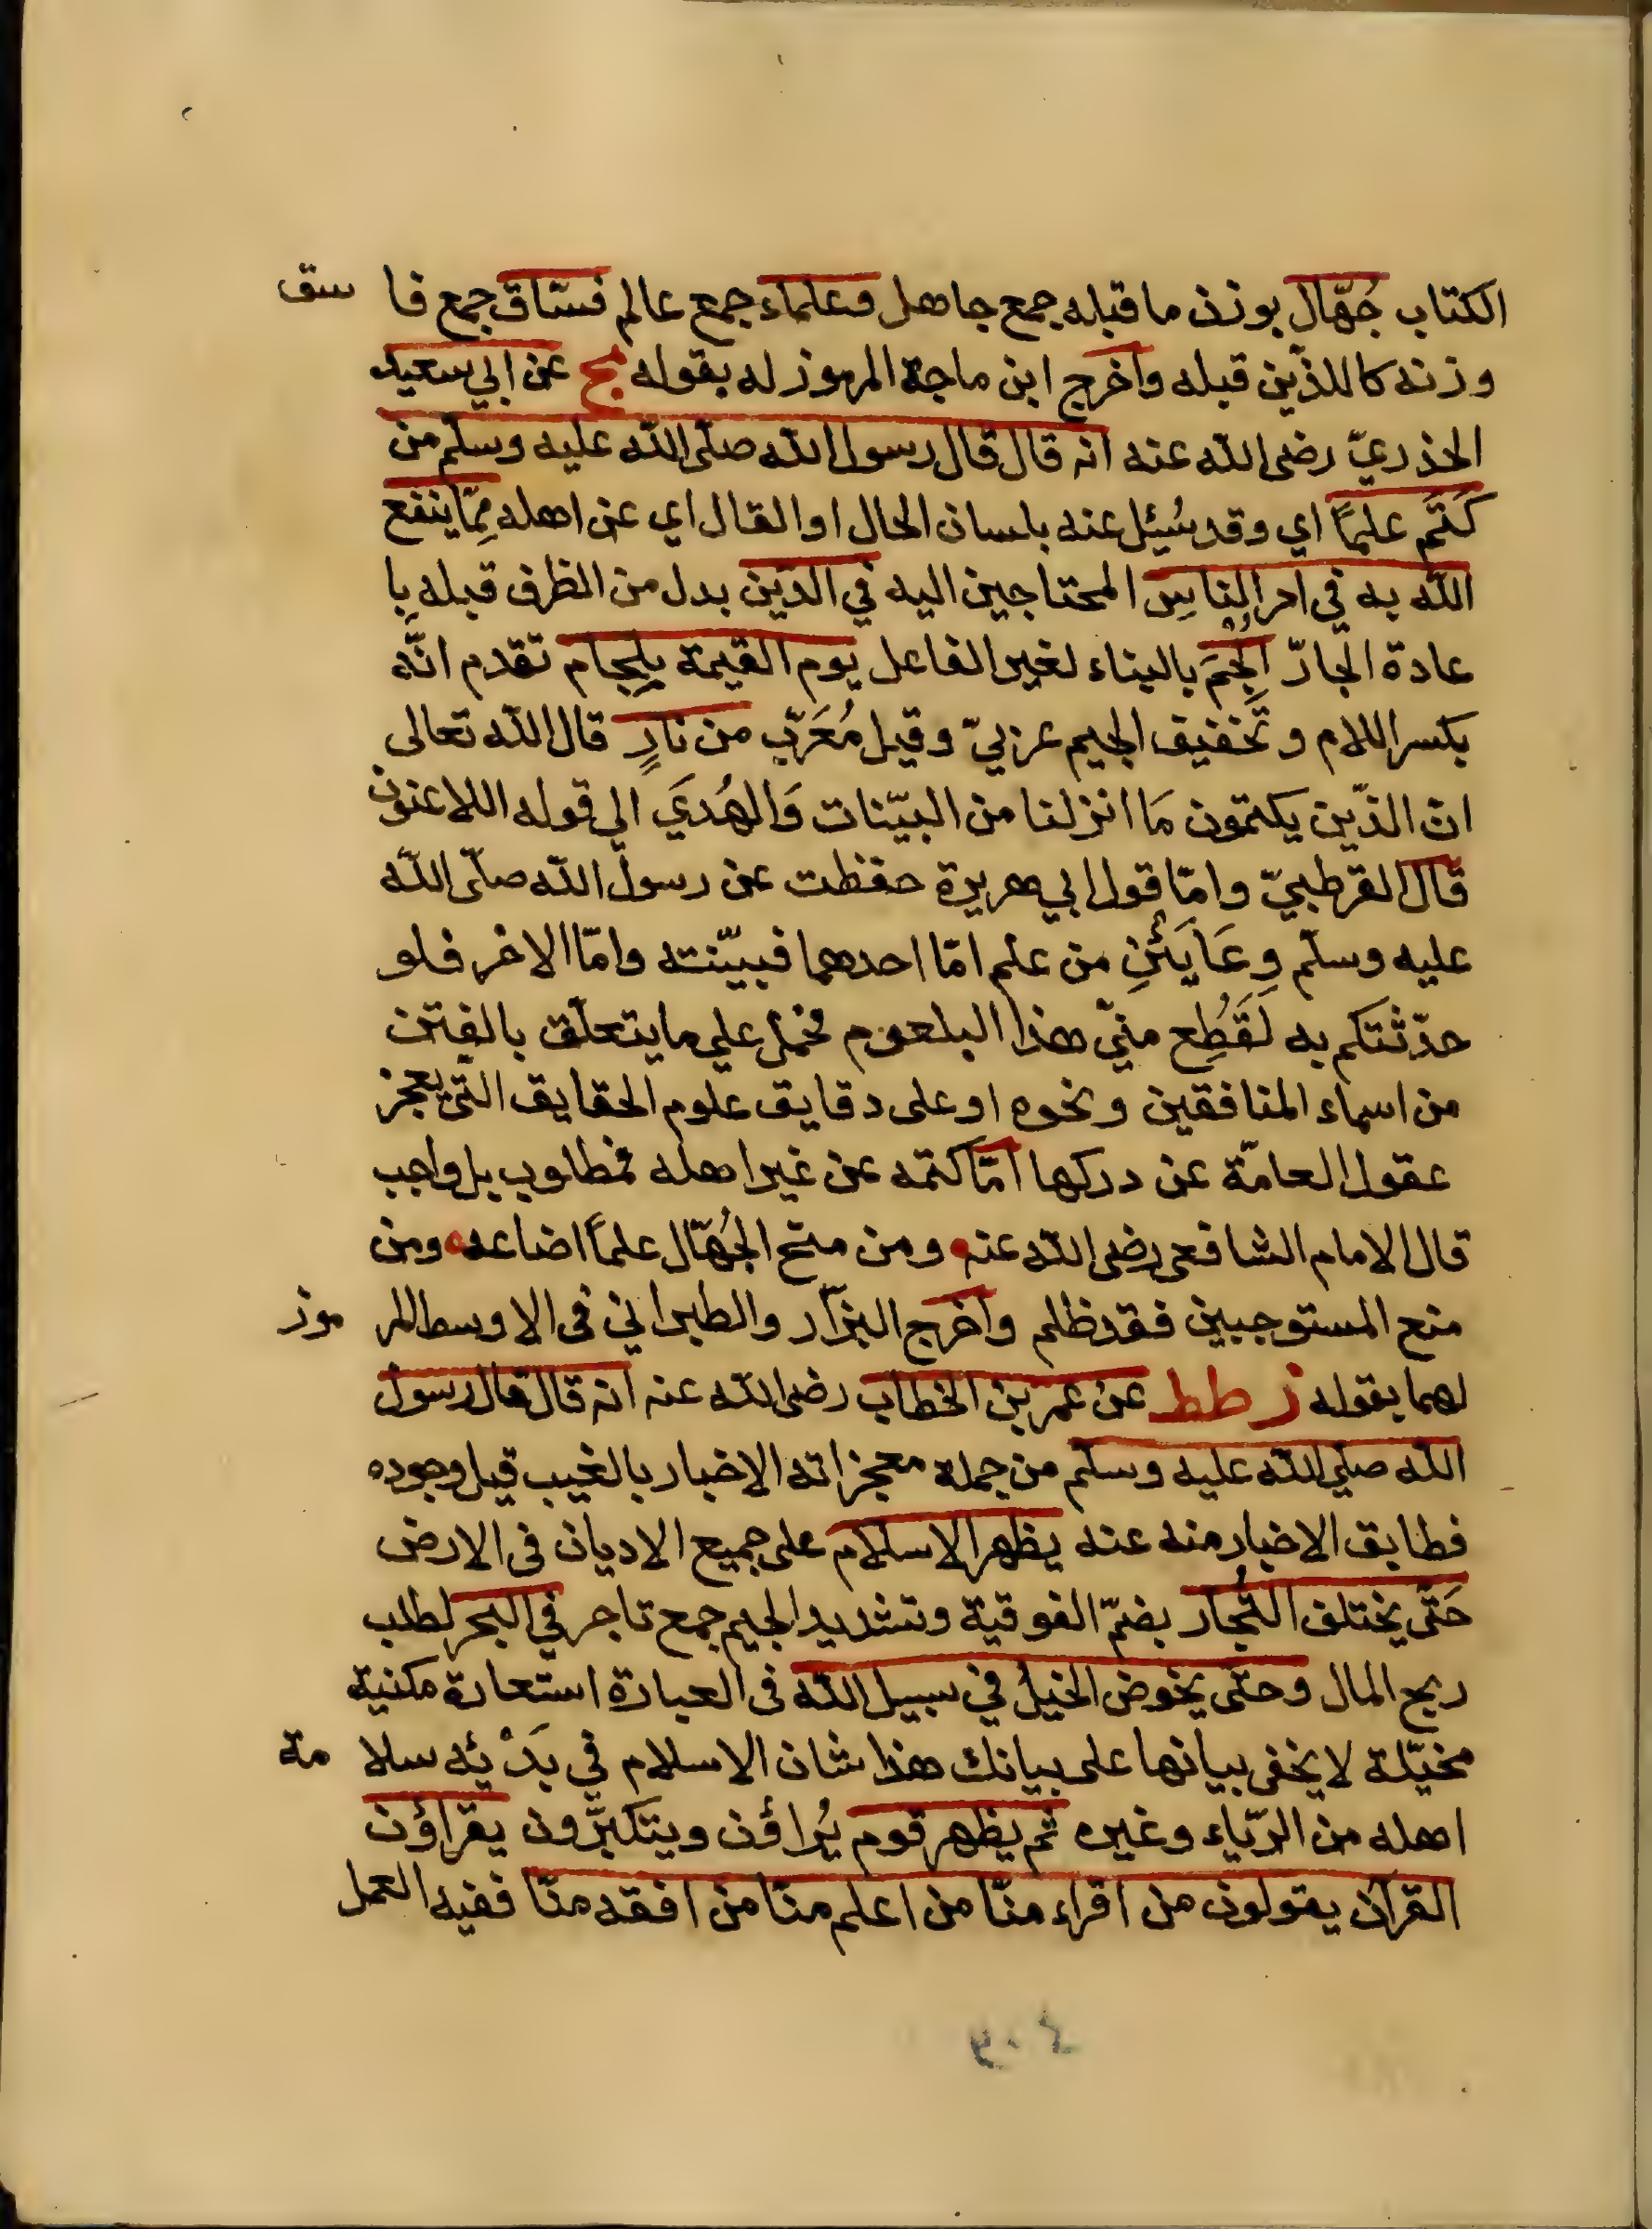 الكتاب جُهّال بوزن ما قبله جمع جاهل وعلماء جمع عالم فسّاق جمع فا سق
وزنه كاللذين قبله وأخرج ابن ماجة المرموز له بقوله مج عن ابي سعيد
الخذريّ رضى الله عنه انه قال قال رسول الله صلّى الله عليه وسلّم من
كَتَمَ علمًا اي وقد سُئِل عنه بلسان الحال او القال اي عن اهله مِمّا ينفع
الله به في امر الناسِ المحتاجين اليه في الدّين بدل من الظرف قبله بِا
عادة الجارّ أُلجِمَ بالبناء لغير الفاعل يوم القيمة بلِجام تقدم انّه
بكسر اللام وتخفيف الجيم عربيّ وقيل مُعَرّب من نارٍ قال الله تعالى
ان الذّين يكتمون مَا انزلنا من البيّنات وَالهُدَي الي قوله اللاعنون
قال القرطبيّ وامّا قول ابي هريرة حفظت عن رسول الله صلّى الله
عليه وسلّم وِعَايَئنِ من علم امّا احدهما فبيّنته وامّا الاخر فلو
حدّثتكم به لَقُطِع منيّ هذا البلعوم فحمل علي ما يتعلّق بالفِتن
من اسماء المنافقين ونحوه او على دقايق علوم الحقايق التّي يعجز
عقول العامّة عن دركها امّا كتمه عن غير اهله فمطلوب بل واجب
قال الامام الشافعى رضى الله عنه ومن منح الجُهّال علمًا اضاعه ومن
منع المستوجبين فقد ظلم وأخرج البزّار والطبراني فى الاوسط المر موز
لهما بقوله ز طط عن عمر بن الخطاب رضى الله عنه انه قال قال رسول
الله صلّي الله عليه وسلّم من جملة معجزاته الاخبار بالغيب قبل وجوده
فطابق الاخبار منه عنه يظهر الاسلام على جميع الاديان فى الارض
حَتّى يختلف التُجار بضمّ الفوقية وتشديد الجيم جمع تاجر في البحر لطلب
ربح المال وحتى يخوض الخيلُ في سبيل الله فى العبارة استعارة مكنية
مخيّلة لا يخفى بيانها على بيانك هذا شان الاسلام في بَدْئِه سلا مة
اهله من الرّياء وغيره ثم يظهر قوم يُراؤن ويتكبّرون يقراؤن
القرآن يقولون من اقراء منّا من اعلم منّا من افقه منّا ففيه العمل